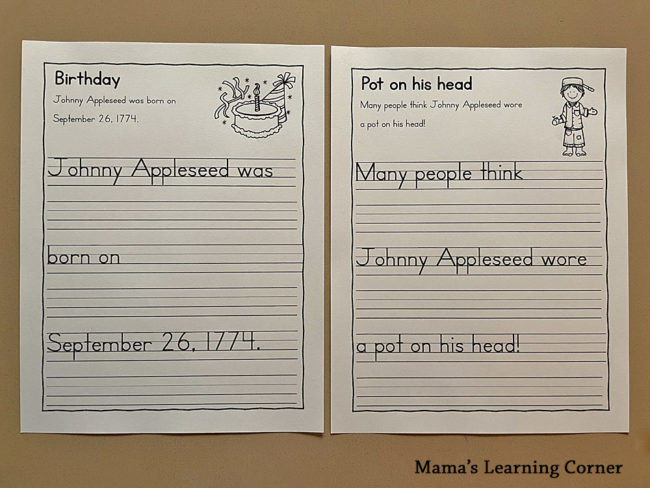 Birthday
Johnny Appleseed was born on
September 26, 1774.
Johnny Appleseed was
born on
September 26, 1774.
Pot on his head
Many people think Johnny Appleseed wore
a pot on his head!
Many people think
Johnny Appleseed wore
a pot on his head!
Mama's Learning Corner